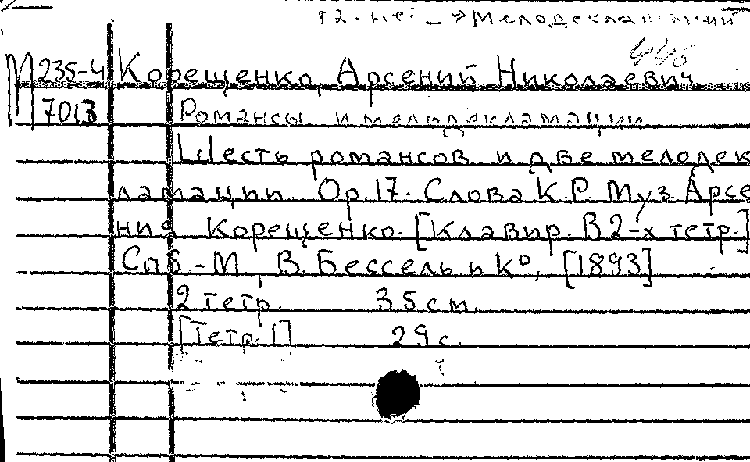 Мелодекламаций
446
М 235-4 Корещенко, Арсений Николаевич
7013 Романсы и мелодекламации
Шесть романсов и две мелодек
ламации. Ор. 17. Слова К.Р. Муз. Арсе
ния Корещенко. [Клавир. В 2-х тетр.]
Спб.-М., В. Бессель и К°, [1893]
2 тетр. 35 см.
[Тетр. 1] 29 с.